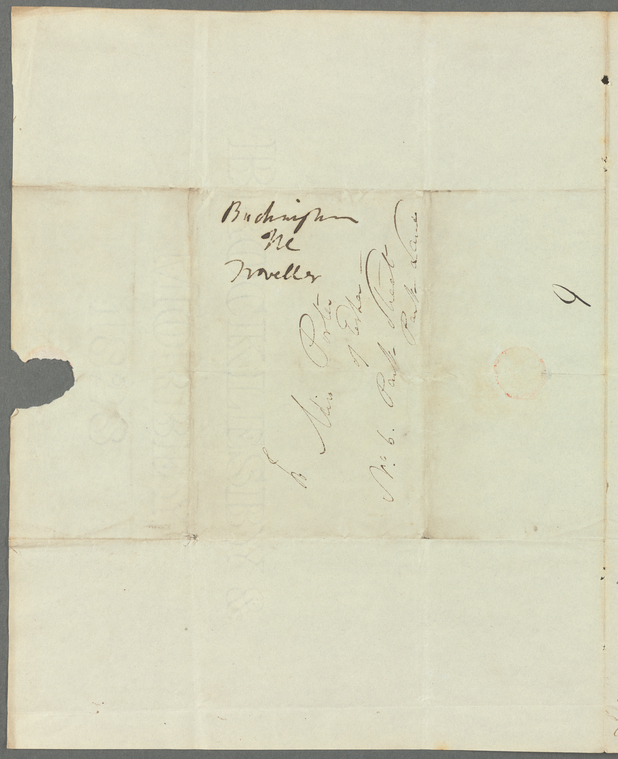 Buckingham
The
Traveller
To Miss Porter
of Esher —
No. 6. Park Street
Park Lane
9